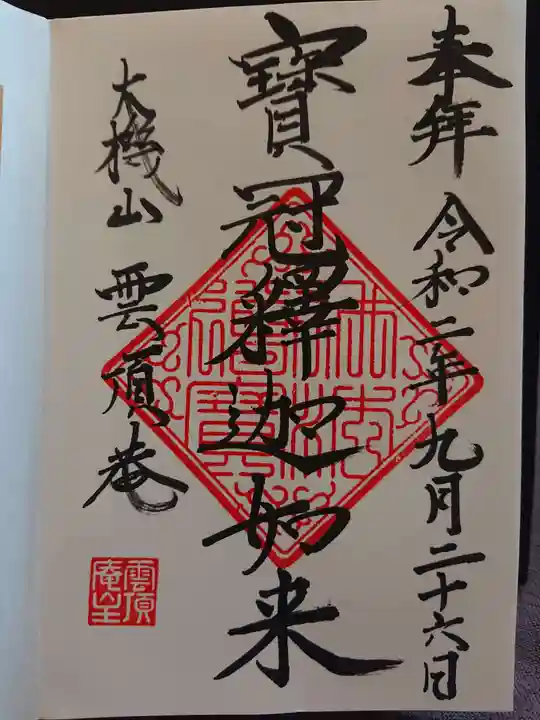 奉拜 令和二年九月二十六日
寶冠釋迦如来
大機山 雲頂庵
佛法僧寶
雲頂庵主